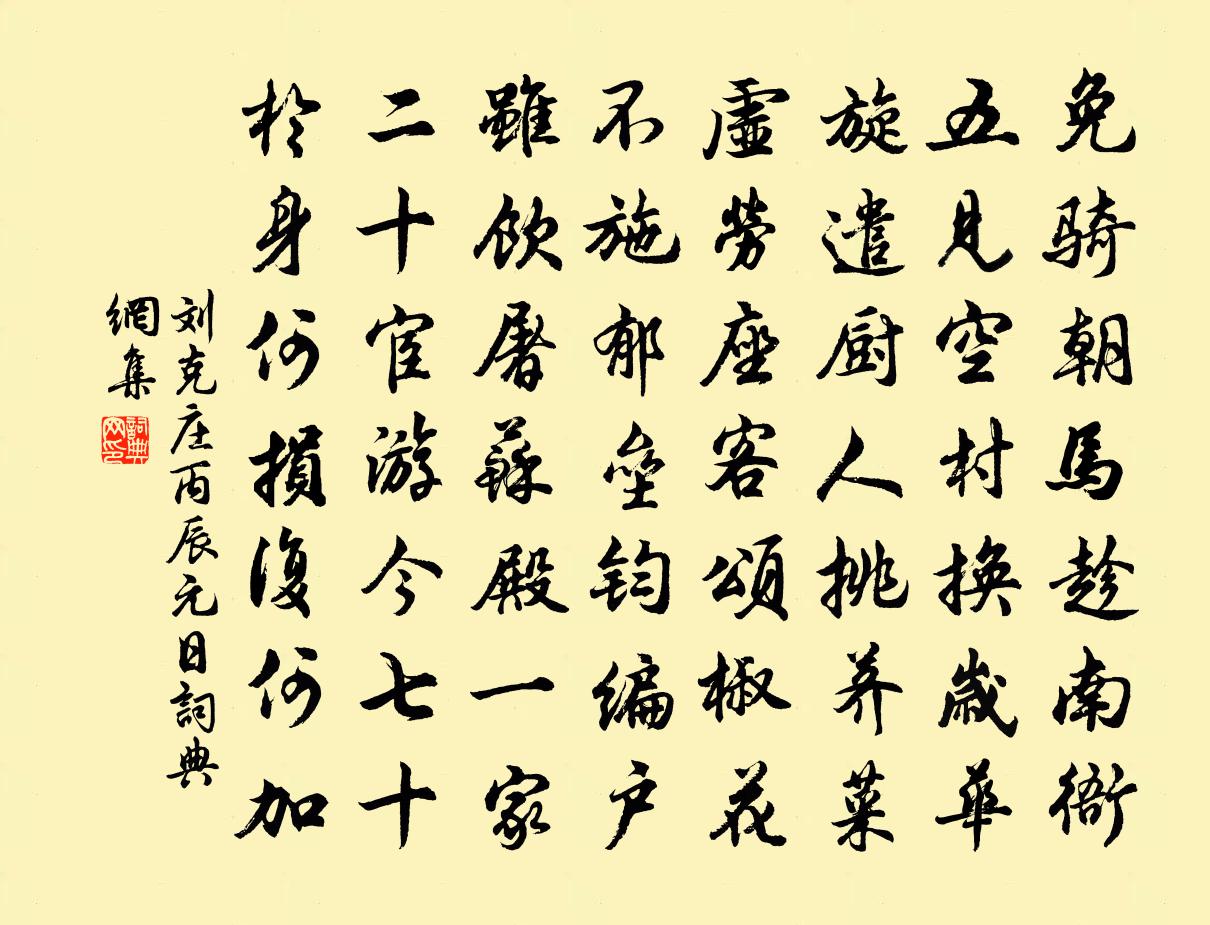 免骑朝馬趁南衙
五見空村換歲華
旋遣厨人挑荠菜
虛勞座客頌椒花
不施郁壘钧编户
雖飲屠蘇殿一家
二十宦游今七十
於身何損復何加
刘克庄丙辰元日詞典
網集
詞典
网印